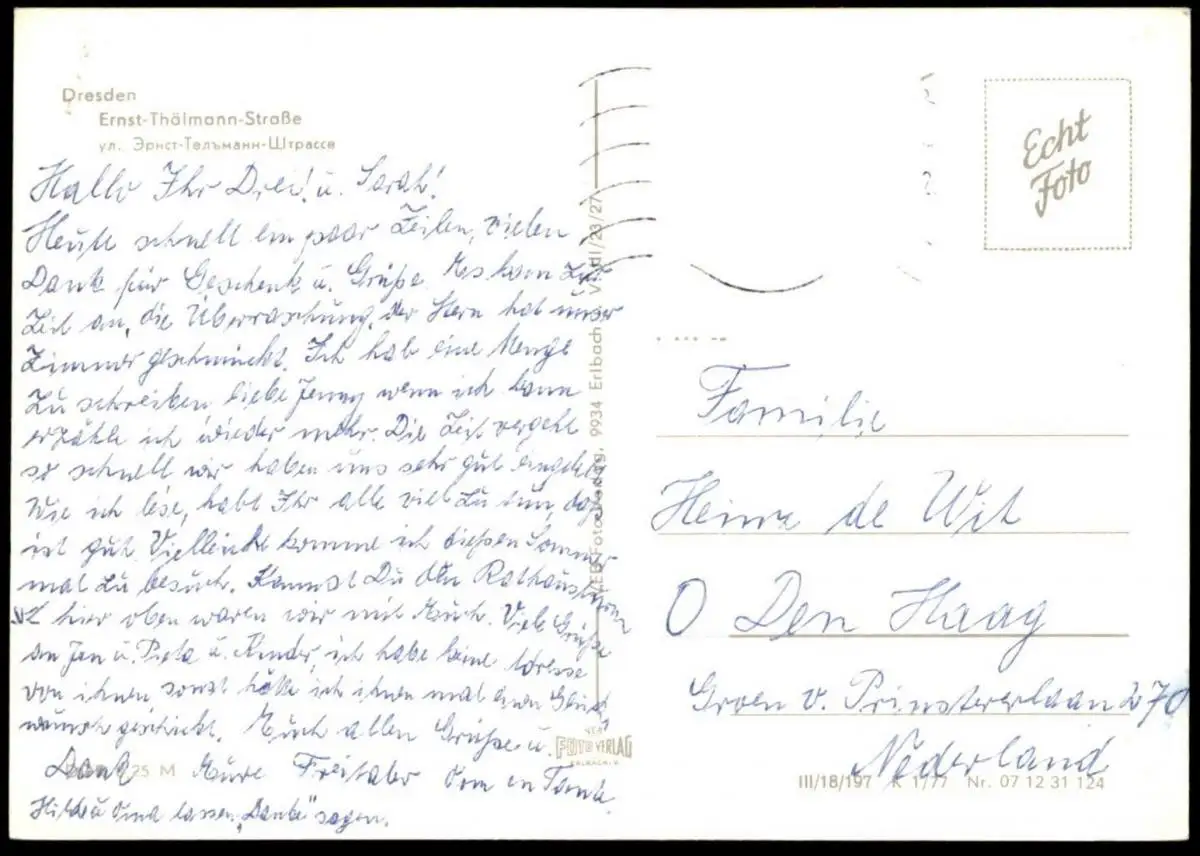 Dresden
Ernst-Thälmann-Straße
ул. Эрнст-Тельманн-Штрассе
Hallo Ihr Drei! u. Sarah!
Heute schnell ein paar Zeilen, vielen
Dank für Geschenk u. Grüße. Es kam zur
Zeit an, die Überraschung, der Stern hat unser
Zimmer geschmückt. Ich hab eine Menge
zu schreiben liebe Jenny wenn ich kann
erzähle ich wieder mehr. Die Zeit vergeht
so schnell wir haben uns sehr gut eingelebt
Wie ich lese, habt Ihr alle viel zu tun, das
ist gut. Vielleicht komme ich diesen Sommer
mal zu besuch. Kannst Du den Rathausturm
hier oben waren wir mit Euch. Viele Grüße
an Jan u. u. Kinder, ich habe keine Adresse
von ihnen sonst hätte ich ihnen mal einen Glück
wunsch geschickt. Euch allen Grüße u.
Dank Eure Freitaler
Hilde u Oma lassen "Danke" sagen.
25 M
VEB Foto-Verlag, 9934 Erlbach V 23/27
VEB
FOTO VERLAG
ERLBACH
Echt
Foto
Familie
de Wit
O Den Haag
Groen v. Prinstererlaan 270
Nederland
III/18/197 K 1/77 Nr. 07 12 31 124